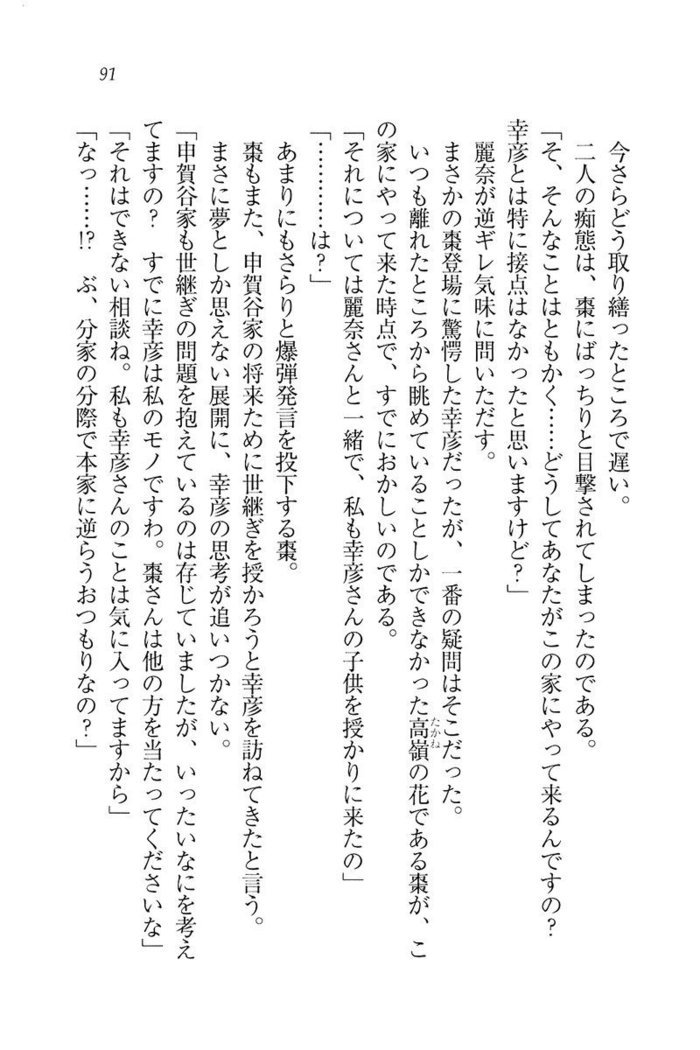 91
今さらどう取り繕ったところで遅い。
二人の痴態は、棗にばっちりと目撃されてしまったのである。
「そ、そんなことはともかく……どうしてあなたがこの家にやって来るんですの？
幸彦とは特に接点はなかったと思いますけど？」
麗奈が逆ギレ気味に問いただす。
まさかの棗登場に驚愕した幸彦だったが、一番の疑問はそこだった。
いつも離れたところから眺めていることしかできなかった高嶺の花である棗が、こ
の家にやって来た時点で、すでにおかしいのである。
「それについては麗奈さんと一緒で、私も幸彦さんの子供を授かりに来たの」
「…………は？」
あまりにもさらりと爆弾発言を投下する棗。
棗もまた、申賀谷家の将来ために世継ぎを授かろうと幸彦を訪ねてきたと言う。
まさに夢としか思えない展開に、幸彦の思考が追いつかない。
「申賀谷家も世継ぎの問題を抱えているのは存じていましたが、いったいなにを考え
てますの？　すでに幸彦は私のモノですわ。棗さんは他の方を当たってくださいな」
「それはできない相談ね。私も幸彦さんのことは気に入ってますから」
「なっ……!?　ぶ、分家の分際で本家に逆らうおつもりなの？」